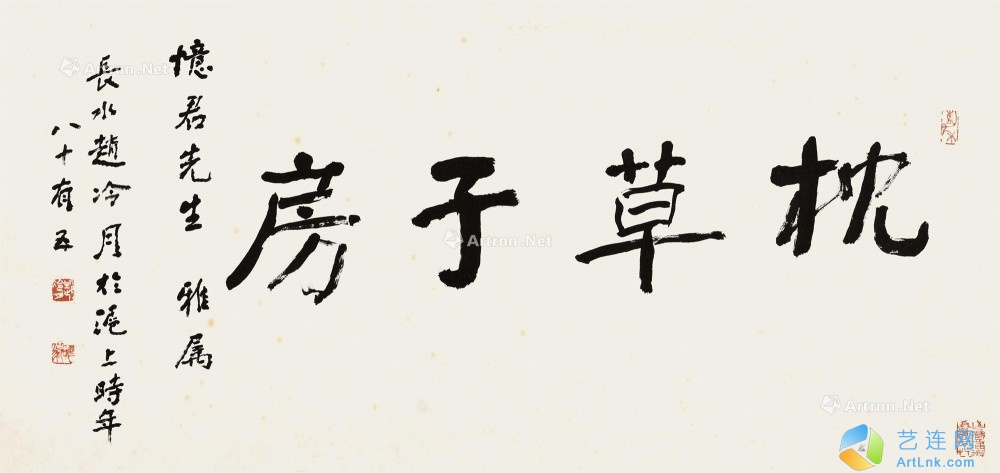 枕草子房
憶君先生 雅属
長水趙冷月於滬上時年
八十有五
Artron.Net
Artron.Net
Artron.Net
Artron.Net
艺连网
ArtLnk.com